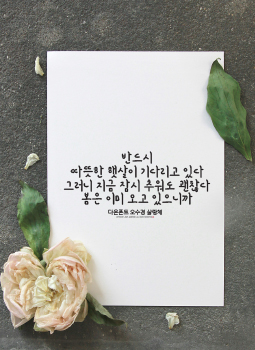 반드시
따뜻한 햇살이 기다리고 있다
그러니 지금 잠시 추워도 괜찮다
봄은 이미 오고 있으니까
다온폰트 오수경 살림체